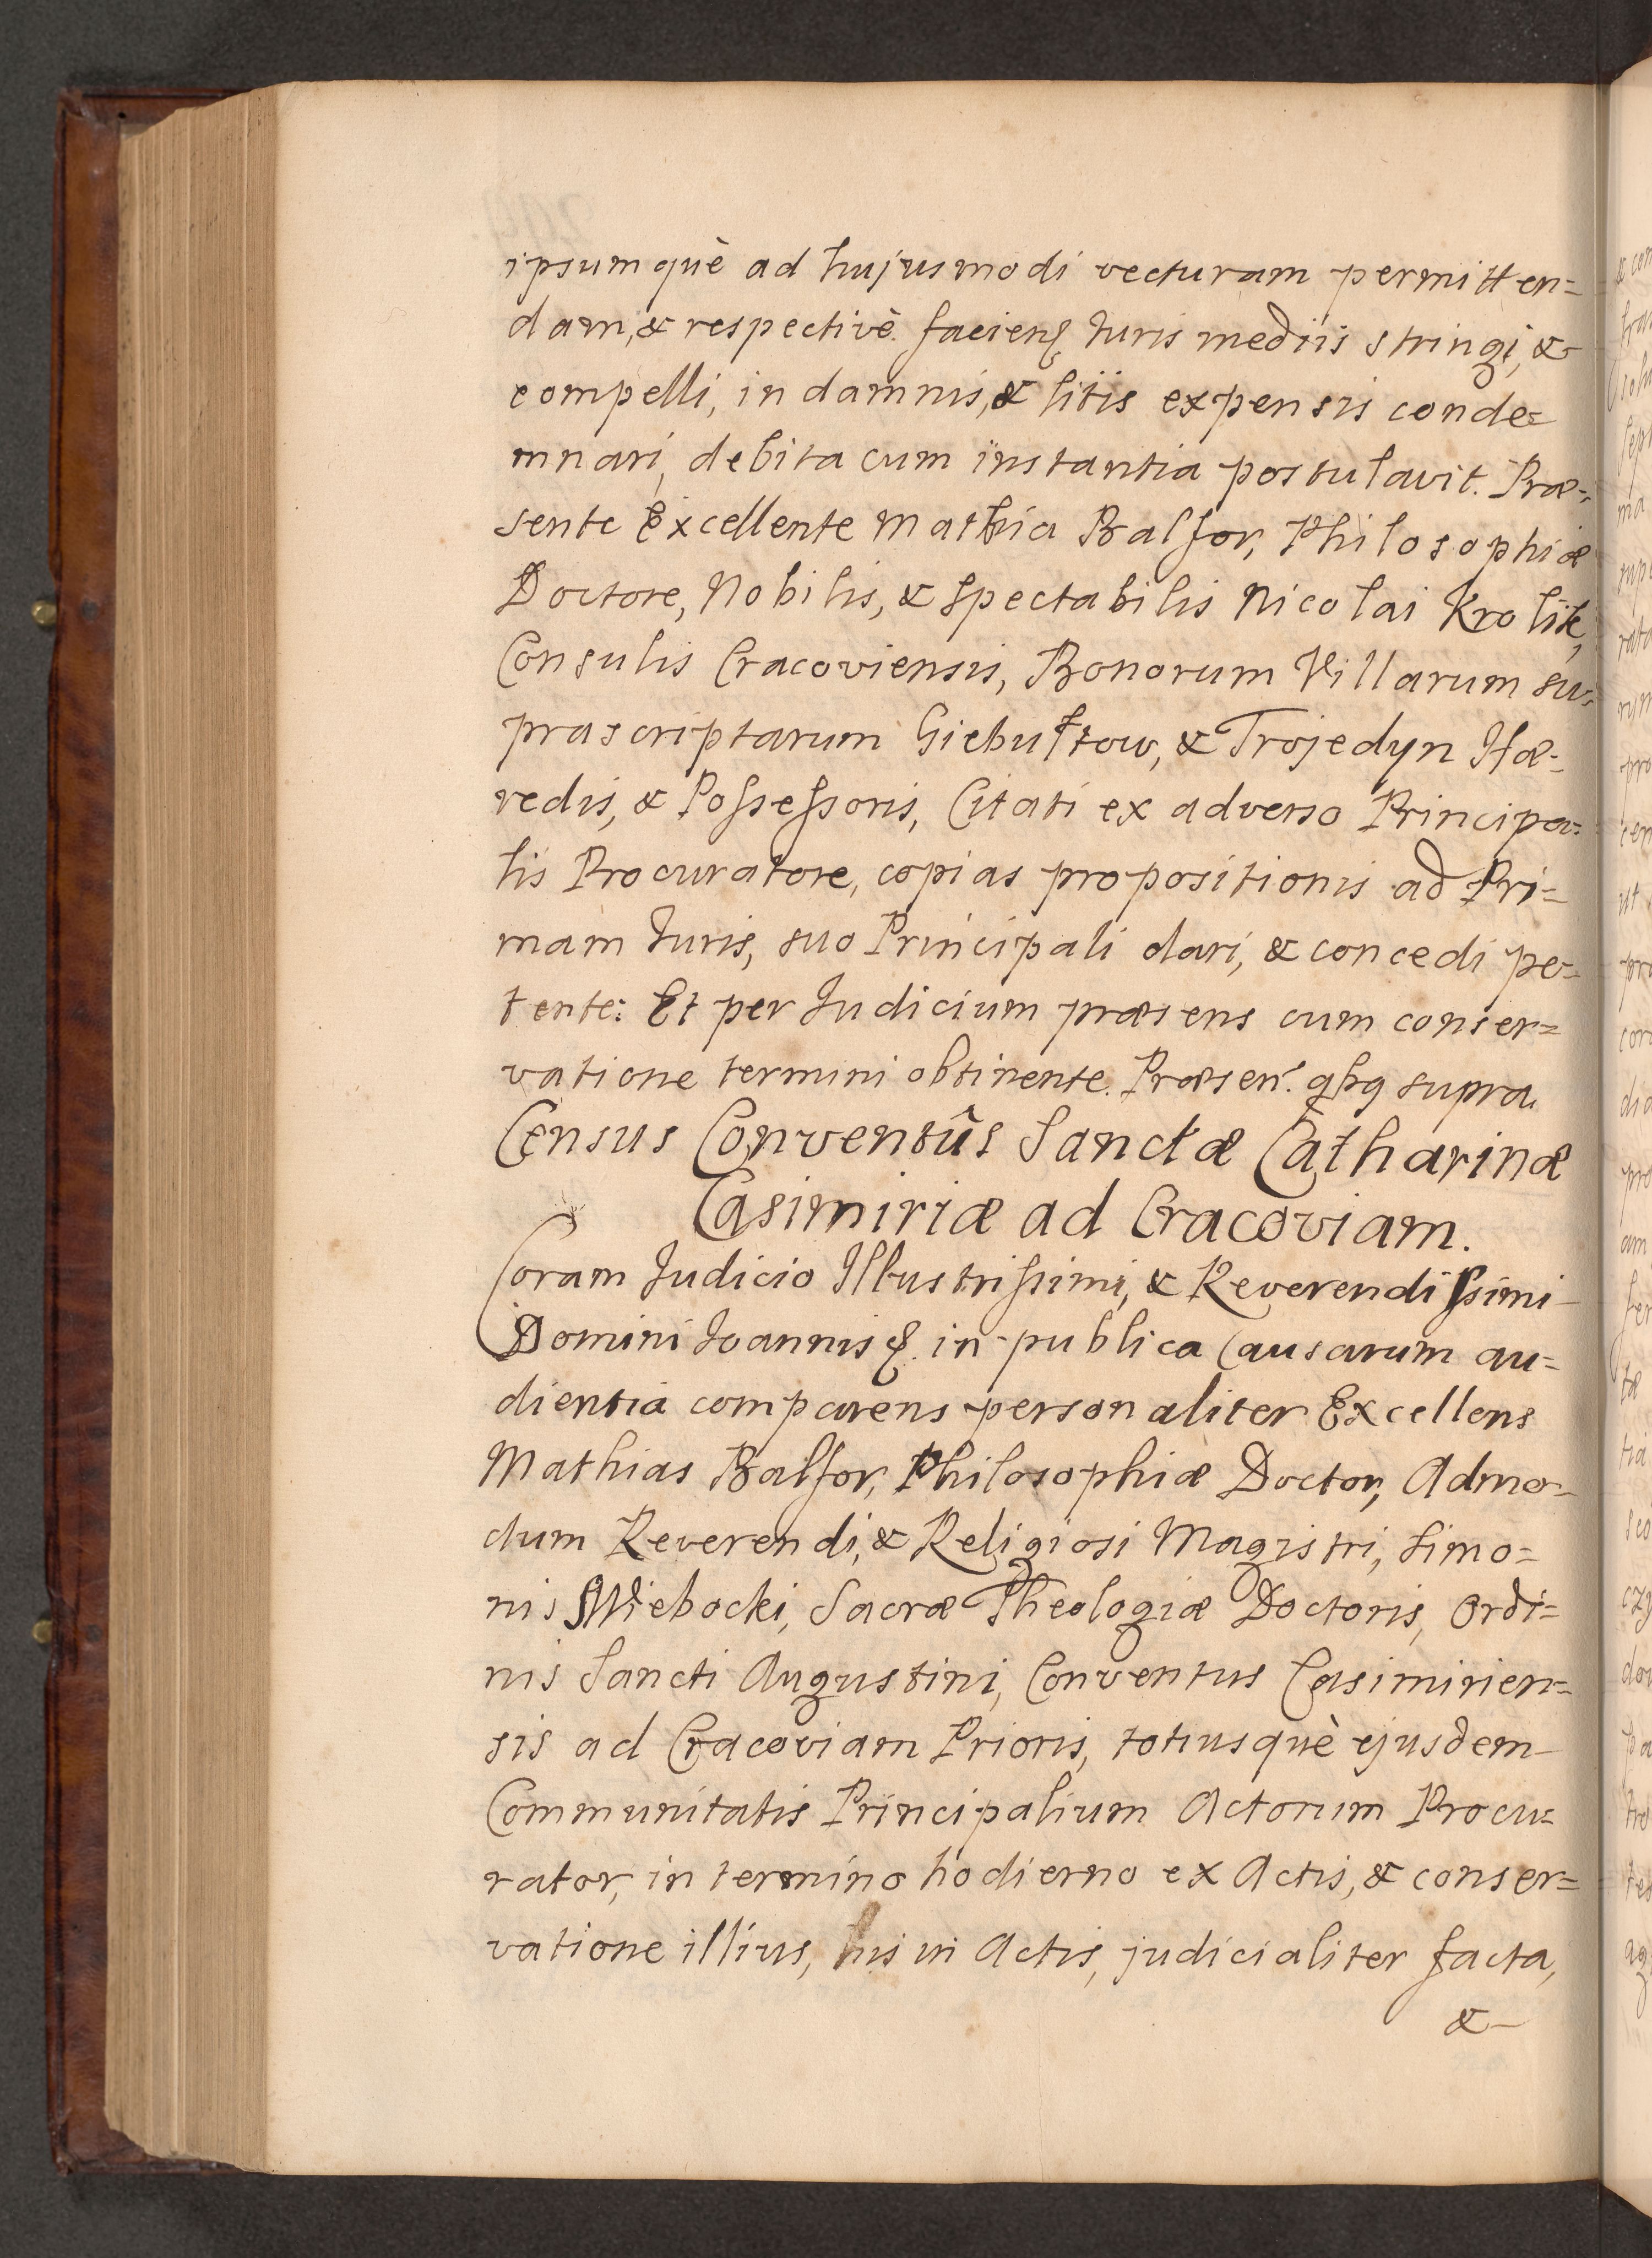 ipsumquè ad hujusmodi vecturam permitten=
dam, & respectivè facien₰ Juris mediis stringi, &
compelli, in damnis, & litis expensis conde=
mnari, debita cum instantia postulavit. Præ=
sente Excellente Mathia Balfor, Philosophiæ
Doctore, Nobilis, & Spectabilis Nicolai Krolik,
Consulis Cracoviensis, Bonorum Villarum su=
prascriptarum Giebułtow, & Trojedyn Hæ=
redis, & Possessoris, Citati ex adverso Principa=
lis Procuratore, copias propositionis ad Pri=
mam Juris, suo Principali dari, & concedi pe=
tente: Et per Judicium præsens cum conser=
vatione termini obtinente. Præsen. supra
Census Conventûs Sanctæ Catharinæ
Casimiriæ ad Cracoviam.
Coram Judicio Illustrissimi, & Reverendissimi
Domini Joannis ₰. in publica Causarum au=
dientia comparens personaliter Excellens
Mathias Balfor, Philosophiæ Doctor, Admo=
dum Reverendi, & Religiosi Magistri, Simo=
nis Mniebocki, Sacræ Theologiæ Doctoris, Ordi=
nis Sancti Augustini, Conventus Casimirien=
sis ad Cracoviam Prioris, totiusquè ejusdem
Communitatis Principalium Actorum Procu=
rator, in termino hodierno ex Actis, & conser=
vatione illius, his in Actis, judicialiter facta,
&